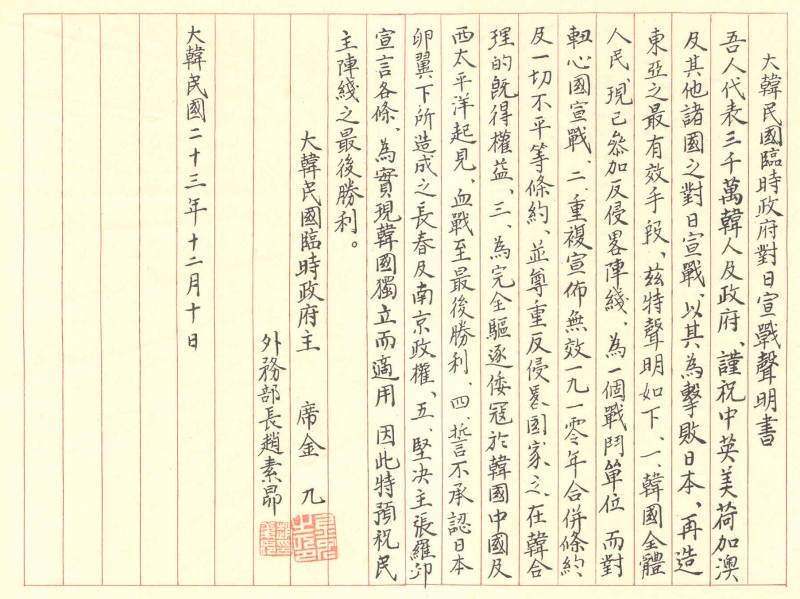 大韓民國臨時政府對日宣戰聲明書
吾人代表三千萬韓人及政府、謹祝中英美荷加澳
及其他諸國之對日宣戰、以其為擊敗日本、再造
東亞之最有效手段、玆特聲明如下、一、韓國全體
人民、現已參加反侵畧陣綫、為一個戰鬥單位、而對
軸心國宣戰、二、重複宣佈無效一九一零年合併條約
及一切不平等條約、並尊重反侵畧國家、之在韓合
理的旣得權益、三、為完全驅逐倭寇於韓國中國及
西太平洋起見、血戰至最後勝利、四、誓不承認日本
卵翼下所造成之長春及南京政權、五、堅決主張羅邱
宣言各條、為實現韓國獨立而適用、因此特預祝民
主陣綫之最後勝利。
大韓民國臨時政府主 席金 九
外務部長趙素昂
大韓民國二十三年十二月十日